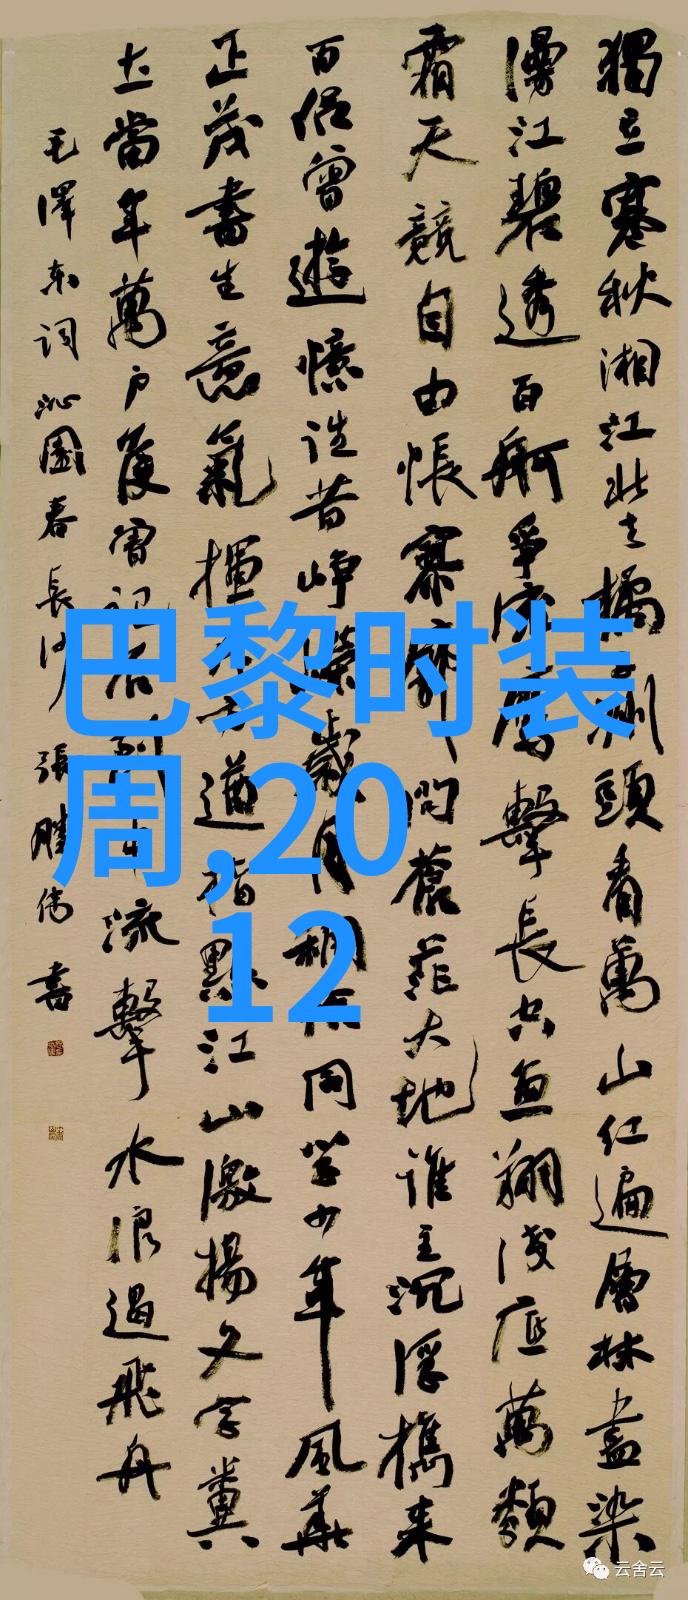 獨立寒秋湘江北去橘子洲頭看萬山紅遍層林盡染
漫江碧透百舸爭流鷹擊長空魚翔淺底萬類
霜天競自由悵寥廓問蒼茫大地誰主沉浮攜來
百侣曾遊憶往昔崢嶸歲月稠恰同學少年風華
正茂書生意氣揮斥方遒指點江山激揚文字糞
土當年萬户侯曾記否到中流擊水浪遏飛舟
毛澤东詞沁園春長沙張勝偉書
巴黎时装
周,20
12
云舍云